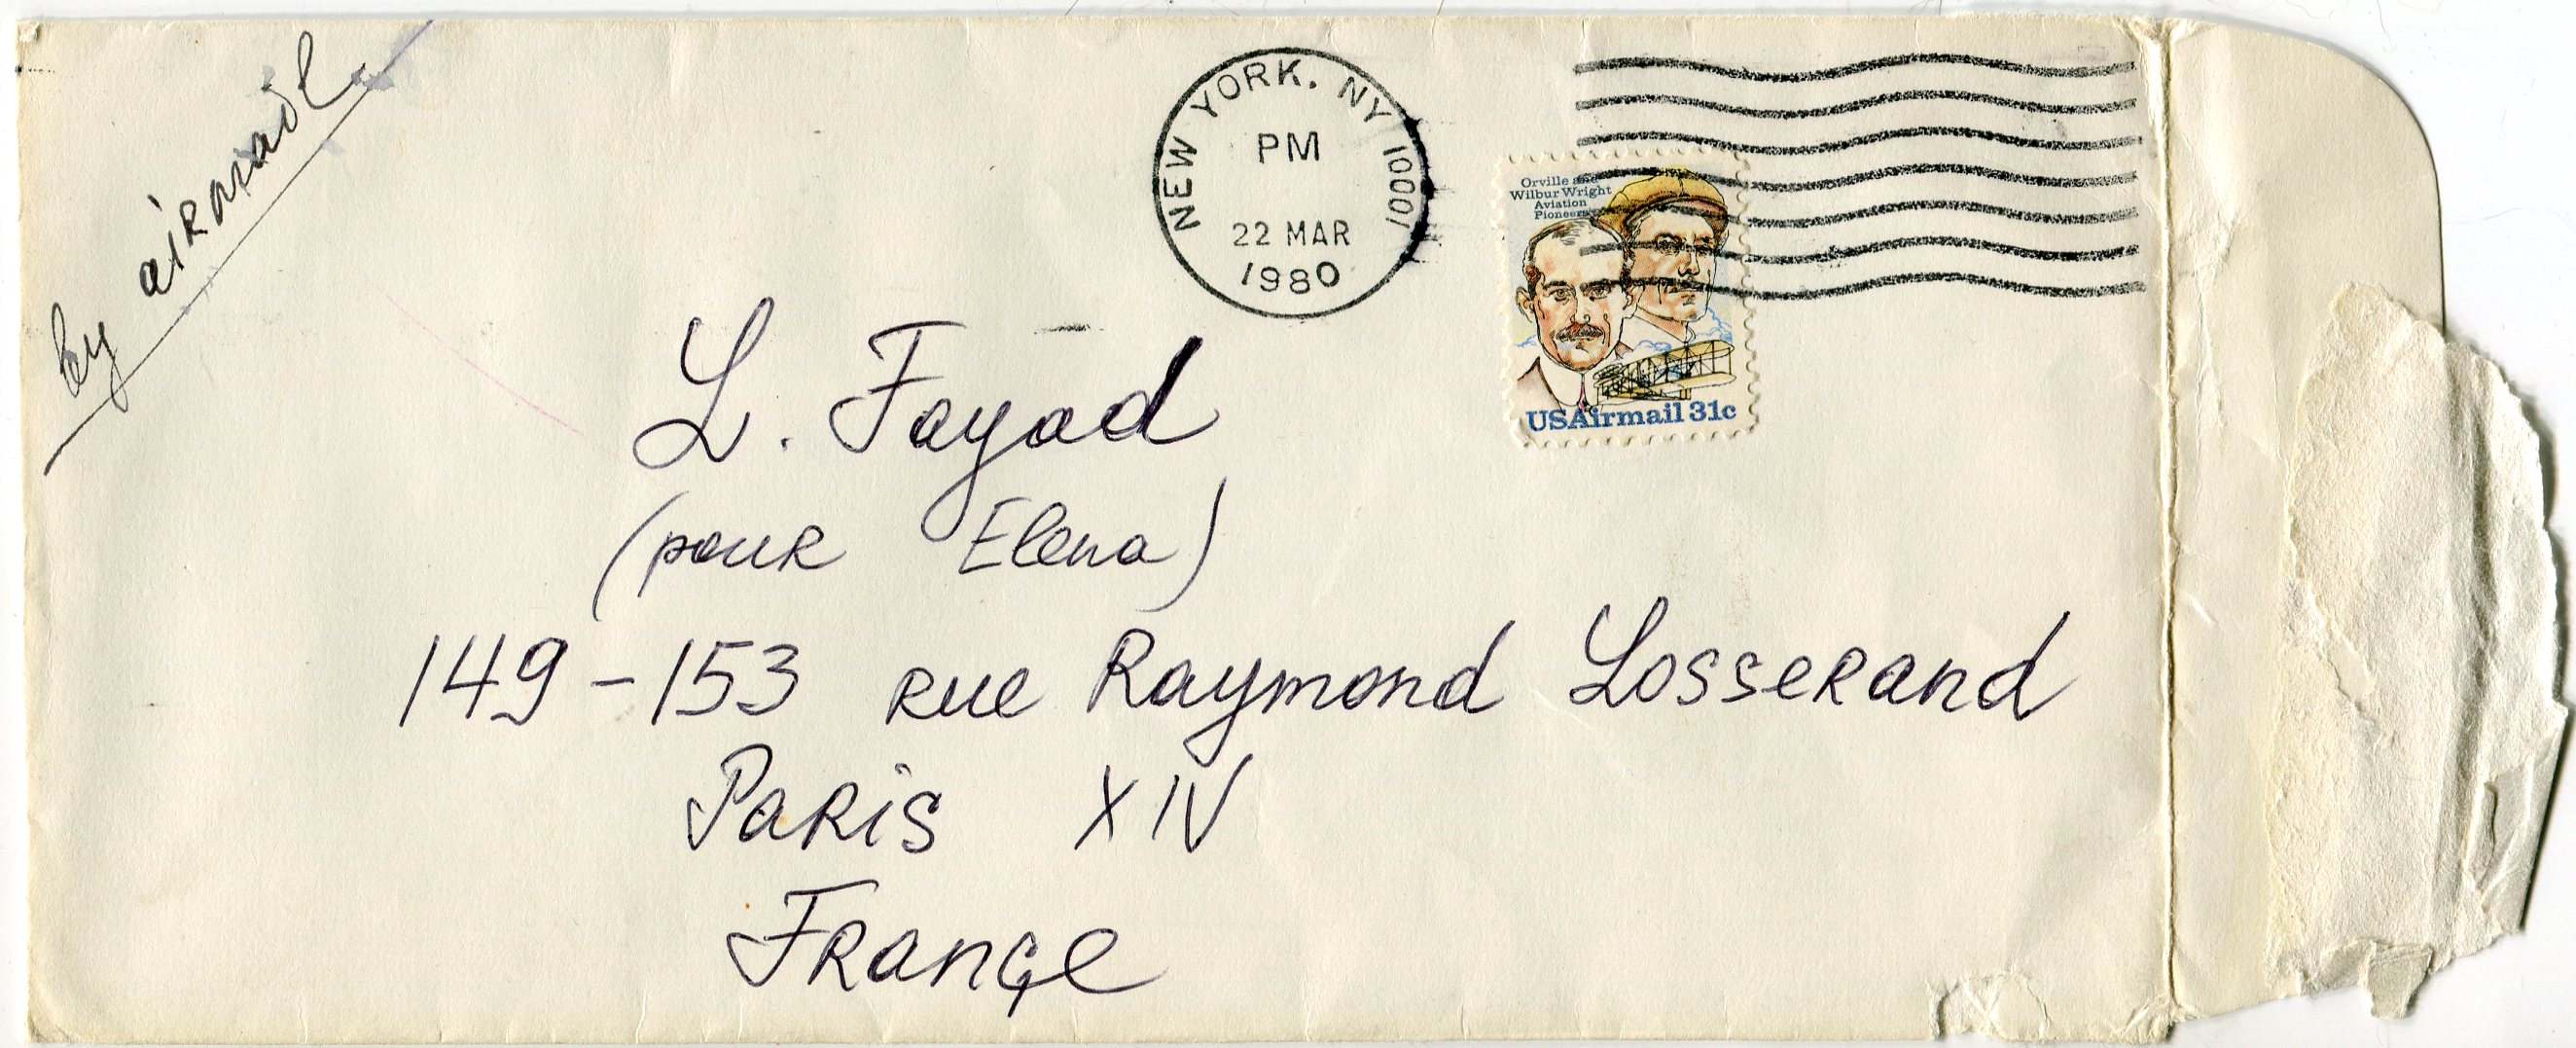 by airmail
NEW YORK, NY 10001
PM
22 MAR
1980
Orville and
Wilbur Wright
Aviation
Pioneers
USAirmail 31c
L. Fayad
(pour Elena)
149-153 rue Raymond Losserand
Paris XIV
Françe